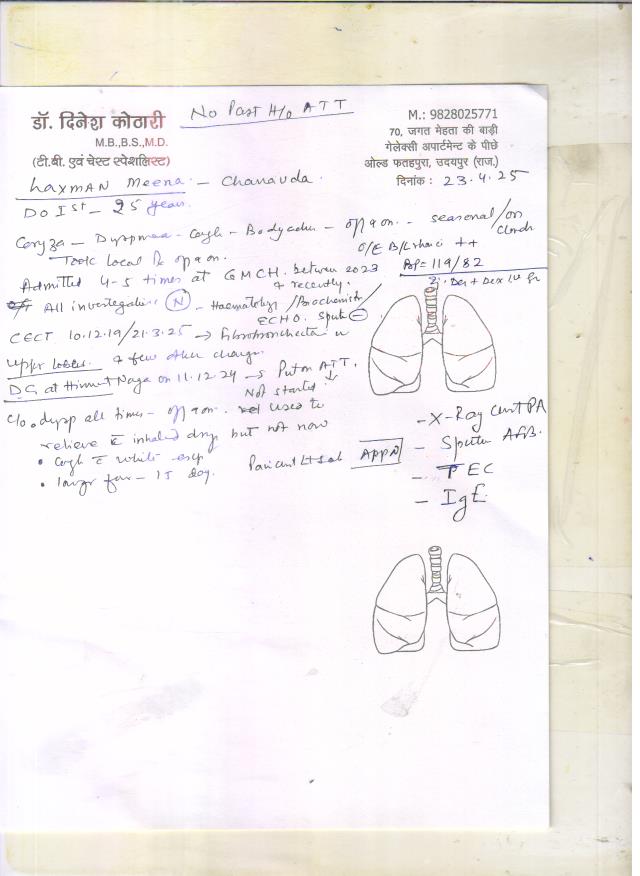 No Past H/o ATT
डॉ. दिनेश कोठारी
M.B.,B.S.,M.D.
(टी.बी. एवं चेस्ट स्पेशलिस्ट)
M.: 9828025771
70, जगत मेहता की बाड़ी
गेलेक्सी अपार्टमेन्ट के पीछे
ओल्ड फतहपुरा, उदयपुर (राज.)
दिनांक : 23.4.25
Laxman Meena - Chanavda.
DOIst - 25 years
Coryza - Dyspnoea - Cough - Bodyache - off & on - seasonal/on
Took local Rx off on.
O/E B/L rhonchi ++
Admitted 4-5 times at GMCH between 2023
& recently.
BP = 119/82
All investigations (N) - Haematology/Biochemistry
ECHO. Sputum (-)
CECT 10.12.19/21.3.25 → Fibrobronchiectasis in
upper lobes & few other changes.
DG at Himmat Nagar on 11.12.24 → Put on ATT.
Not started
c/o dysp all times - off & on. used to
relieve c inhaled drug but not now
• Cough c white exp
• fever - 15 day.
APPN
- X-Ray Chest PA
- Sputum AFB.
- TEC
- IgE